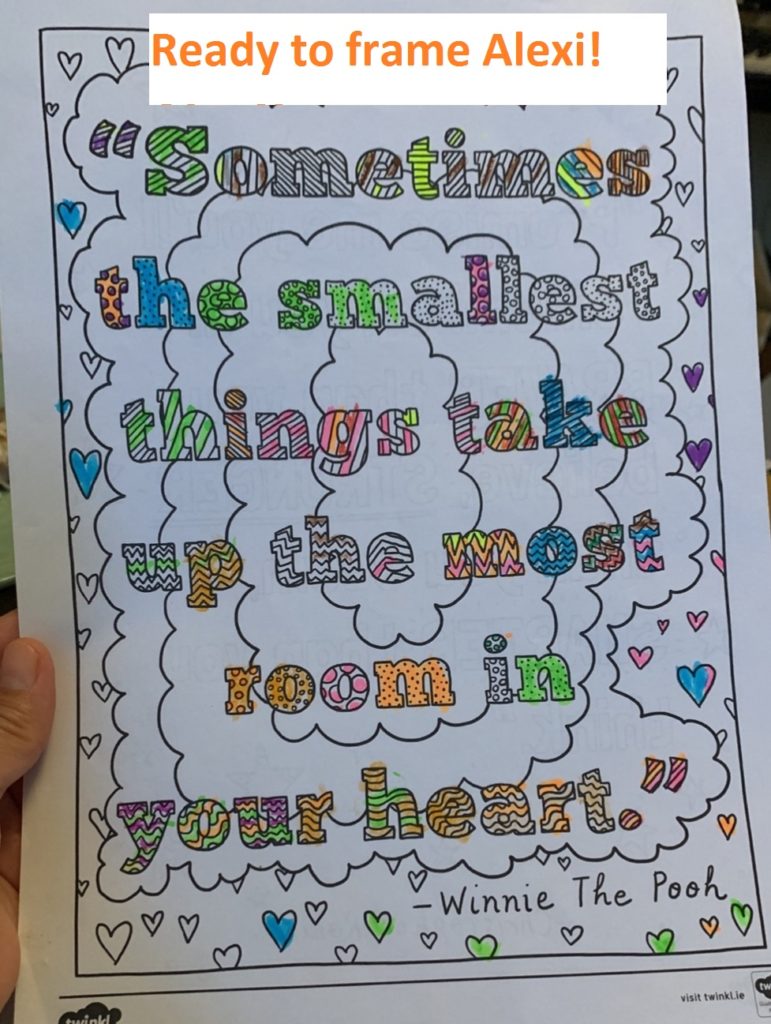 Ready to frame Alexi!
“Sometimes
the smallest
things take
up the most
room in
your heart.”
–Winnie The Pooh
visit twinkl.ie
twinkl